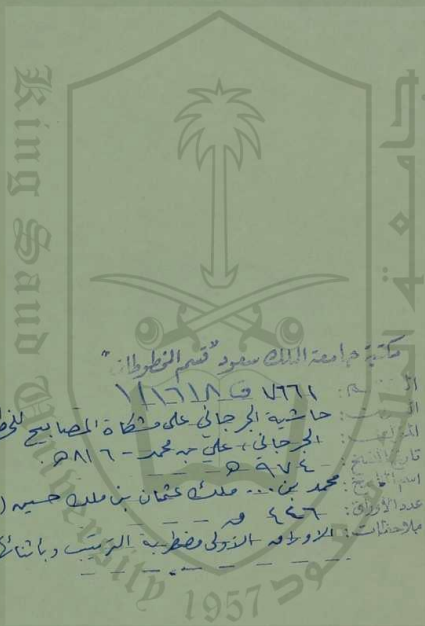 King Saud University
جامعة الملك سعود
1957
مكتبة جامعة الملك سعود "قسم المخطوطات"
الرقم: ٧٦٦١ ف ١١٦١٨
حاشية الجرجاني على مشكاة المصابيح
المؤلف: الجرجاني، علي بن محمد - ٨١٦ هـ
تاريخ النسخ: ٩٧٤ هـ
اسم الناسخ: محمد بن ... ملك عثمان بن ملك حسين (
عدد الأوراق: ٤٢٦ ق
ملاحظات: الأوراق الأولى مضطربة الترتيب